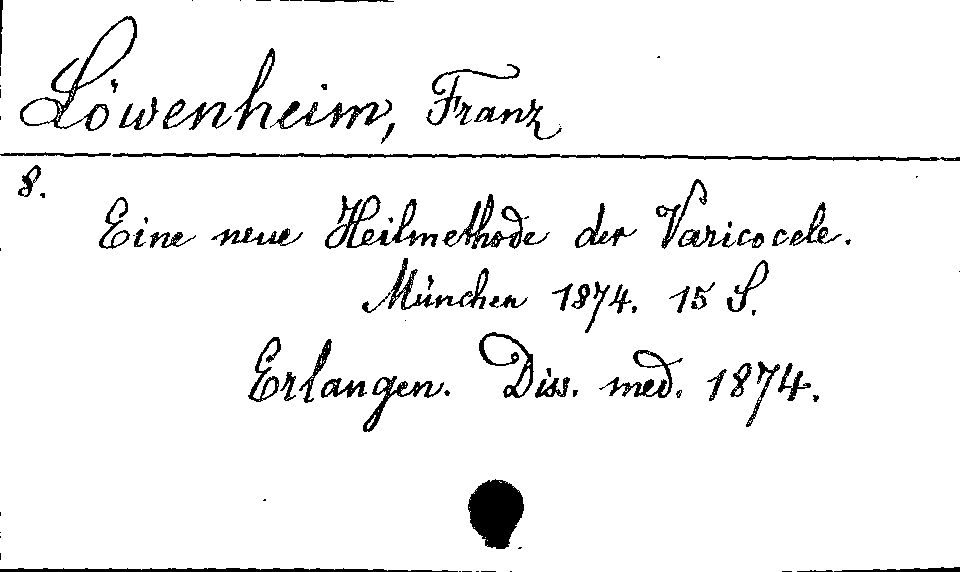 Löwenheim, Franz
8.
Eine neue Heilmethode der Varicocele.
München 1874. 15 S.
Erlangen. Diss. med. 1874.